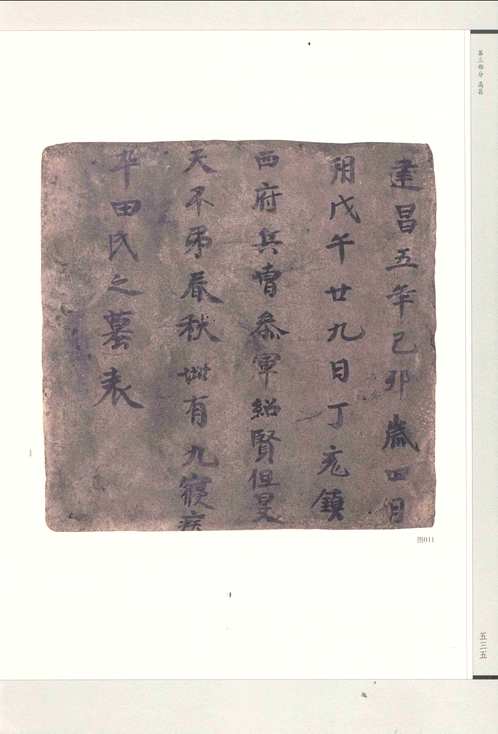 建昌五年己卯歲四月
朔戊午廿九日丁亥鎮
西府兵曹叅軍紹賢但旻
天不弔春秋卌有九寢疾
卒田氏之墓表
图011
第三部分 高昌
五三五